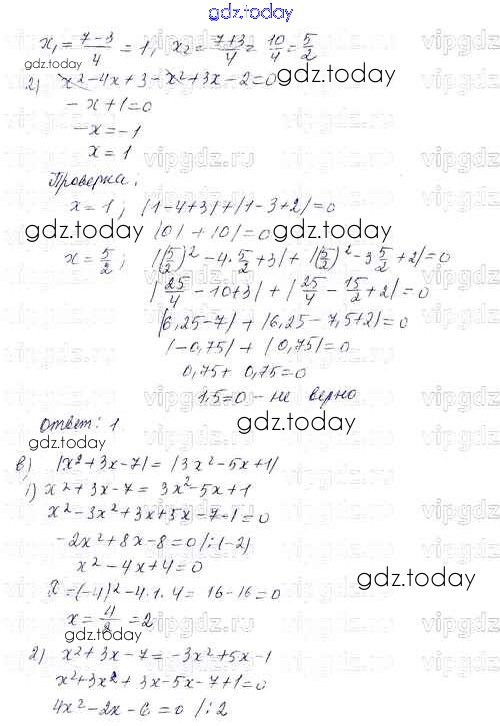 gdz.today
x₁ = (7-3)/4 = 1; x₂ = (7+3)/4 = 10/4 = 5/2
gdz.today
2) x² - 4x + 3 - x² + 3x - 2 = 0
- x + 1 = 0
- x = -1
x = 1
Проверка:
x = 1; |1-4+3| + |1-3+2| = 0
gdz.today |0| + |0| = 0 gdz.today
x = 5/2; |(5/2)² - 4·5/2 + 3| + |(5/2)² - 3 5/2 + 2| = 0
|25/4 - 10 + 3| + |25/4 - 15/2 + 2| = 0
|6,25 - 7| + |6,25 - 7,5 + 2| = 0
|-0,75| + |0,75| = 0
0,75 + 0,75 = 0
1,5 = 0 - не верно
Ответ: 1
gdz.today
gdz.today
в) |x² + 3x - 7| = |3x² - 5x + 1|
1) x² + 3x - 7 = 3x² - 5x + 1
x² - 3x² + 3x + 5x - 7 - 1 = 0
-2x² + 8x - 8 = 0 /:(-2)
x² - 4x + 4 = 0
gdz.today
D = (-4)² - 4·1·4 = 16 - 16 = 0
x = 4/2 = 2
gdz.today
2) x² + 3x - 7 = -3x² + 5x - 1
x² + 3x² + 3x - 5x - 7 + 1 = 0
4x² - 2x - 6 = 0 /:2
vipgdz.ru